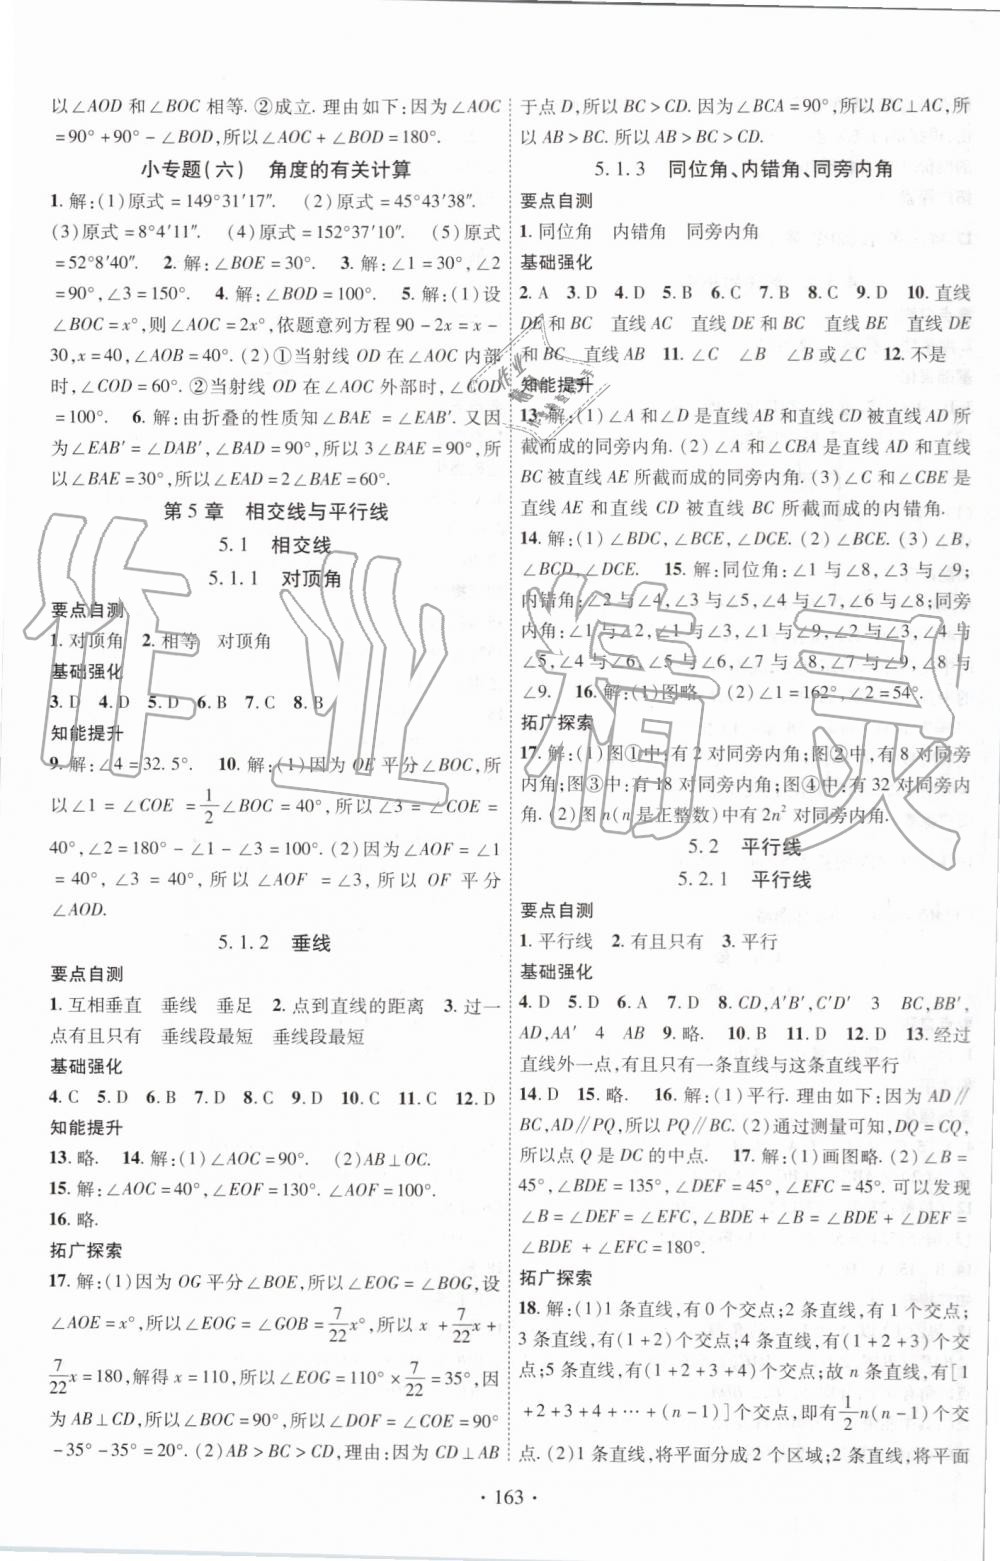 以∠AOD 和∠BOC 相等. ②成立. 理由如下:因为∠AOC
=90°+90°-∠BOD,所以∠AOC+∠BOD=180°.
小专题(六) 角度的有关计算
1. 解:(1)原式=149°31′17″. (2)原式=45°43′38″.
(3)原式=8°4′11″. (4)原式=152°37′10″. (5)原式
=52°8′40″. 2. 解:∠BOE=30°. 3. 解:∠1=30°,∠2
=90°,∠3=150°. 4. 解:∠BOD=100°. 5. 解:(1)设
∠BOC=x°,则∠AOC=2x°,依题意列方程 90-2x=x-
30,x=40,∠AOB=40°. (2)①当射线 OD 在∠AOC 内部
时,∠COD=60°. ②当射线 OD 在∠AOC 外部时,∠COD
=100°. 6. 解:由折叠的性质知∠BAE=∠EAB′. 又因
为∠EAB′=∠DAB′,∠BAD=90°,所以 3∠BAE=90°,所
以∠BAE=30°,所以∠EAD=2∠BAE=60°.
第 5 章 相交线与平行线
5.1 相交线
5.1.1 对顶角
要点自测
1. 对顶角 2. 相等 对顶角
基础强化
3. D 4. D 5. D 6. B 7. C 8. B
知能提升
9. 解:∠4=32.5°. 10. 解:(1)因为 OE 平分∠BOC,所
以∠1=∠COE=1/2∠BOC=40°,所以∠3=∠COE=
40°,∠2=180°-∠1-∠3=100°. (2)因为∠AOF=∠1
=40°,∠3=40°,所以∠AOF=∠3,所以 OF 平分
∠AOD.
5.1.2 垂线
要点自测
1. 互相垂直 垂线 垂足 2. 点到直线的距离 3. 过一
点有且只有 垂线段最短 垂线段最短
基础强化
4. C 5. D 6. B 7. D 8. C 9. D 10. C 11. C 12. D
知能提升
13. 略. 14. 解:(1)∠AOC=90°. (2)AB⊥OC.
15. 解:∠AOC=40°,∠EOF=130°. ∠AOF=100°.
16. 略.
拓广探索
17. 解:(1)因为 OG 平分∠BOE,所以∠EOG=∠BOG,设
∠AOE=x°,所以∠EOG=∠GOB=7/22x°,所以 x+7/22x+
7/22x=180,解得 x=110,所以∠EOG=110°×7/22=35°,因
为 AB⊥CD,所以∠BOC=90°,所以∠DOF=∠COE=90°
-35°-35°=20°. (2)AB>BC>CD,理由:因为 CD⊥AB
于点 D,所以 BC>CD. 因为∠BCA=90°,所以 BC⊥AC,所
以 AB>BC. 所以 AB>BC>CD.
5.1.3 同位角、内错角、同旁内角
要点自测
1. 同位角 内错角 同旁内角
基础强化
2. A 3. D 4. D 5. B 6. C 7. B 8. C 9. D 10. 直线
DE 和 BC 直线 AC 直线 DE 和 BC 直线 BE 直线 DE
和 BC 直线 AB 11. ∠C ∠B ∠B 或∠C 12. 不是
知能提升
13. 解:(1)∠A 和∠D 是直线 AB 和直线 CD 被直线 AD 所
截而成的同旁内角. (2)∠A 和∠CBA 是直线 AD 和直线
BC 被直线 AE 所截而成的同旁内角. (3)∠C 和∠CBE 是
直线 AE 和直线 CD 被直线 BC 所截而成的内错角.
14. 解:(1)∠BDC,∠BEC,∠DCE. (2)∠BCE. (3)∠B,
∠BCD,∠DCE. 15. 解:同位角:∠1 与∠8,∠1 与∠9;
内错角:∠2 与∠4,∠3 与∠5,∠7 与∠6 与∠8;同旁
内角:∠1 与∠2,∠1 与∠3,∠1 与∠9,∠2 与∠3,∠4 与
∠5,∠4 与∠6,∠5 与∠6,∠7 与∠2,∠7 与∠9,∠8 与
∠9. 16. 解:(1)图略. (2)∠1=162°,∠2=54°.
拓广探索
17. 解:(1)图①中:有 2 对同旁内角;图②中,有 8 对同旁
内角;图③中:有 18 对同旁内角;图④中:有 32 对同旁内
角. (2)图 n(n 是正整数)中有 2n² 对同旁内角.
5.2 平行线
5.2.1 平行线
要点自测
1. 平行线 2. 有且只有 3. 平行
基础强化
4. D 5. D 6. A 7. D 8. CD,A′B′,C′D′ 3 BC,BB′,
AD,AA′ 4 AB 9. 略. 10. B 11. D 12. D 13. 经过
直线外一点,有且只有一条直线与这条直线平行
14. D 15. 略. 16. 解:(1)平行. 理由如下:因为 AD∥
BC,AD∥PQ,所以 PQ∥BC. (2)通过测量可知,DQ=CQ,
所以点 Q 是 DC 的中点. 17. 解:(1)画图略. (2)∠B=
45°,∠BDE=135°,∠DEF=45°,∠EFC=45°. 可以发现
∠B=∠DEF=∠EFC,∠BDE+∠B=∠BDE+∠DEF=
∠BDE+∠EFC=180°.
拓广探索
18. 解:(1)1 条直线,有 0 个交点;2 条直线,有 1 个交点;
3 条直线,有(1+2)个交点;4 条直线,有(1+2+3)个交
点;5 条直线,有(1+2+3+4)个交点;故 n 条直线,有[1
+2+3+4+…+(n-1)]个交点,即有1/2n(n-1)个交
点. (2)1 条直线,将平面分成 2 个区域;2 条直线,将平面
· 163 ·
作业精灵